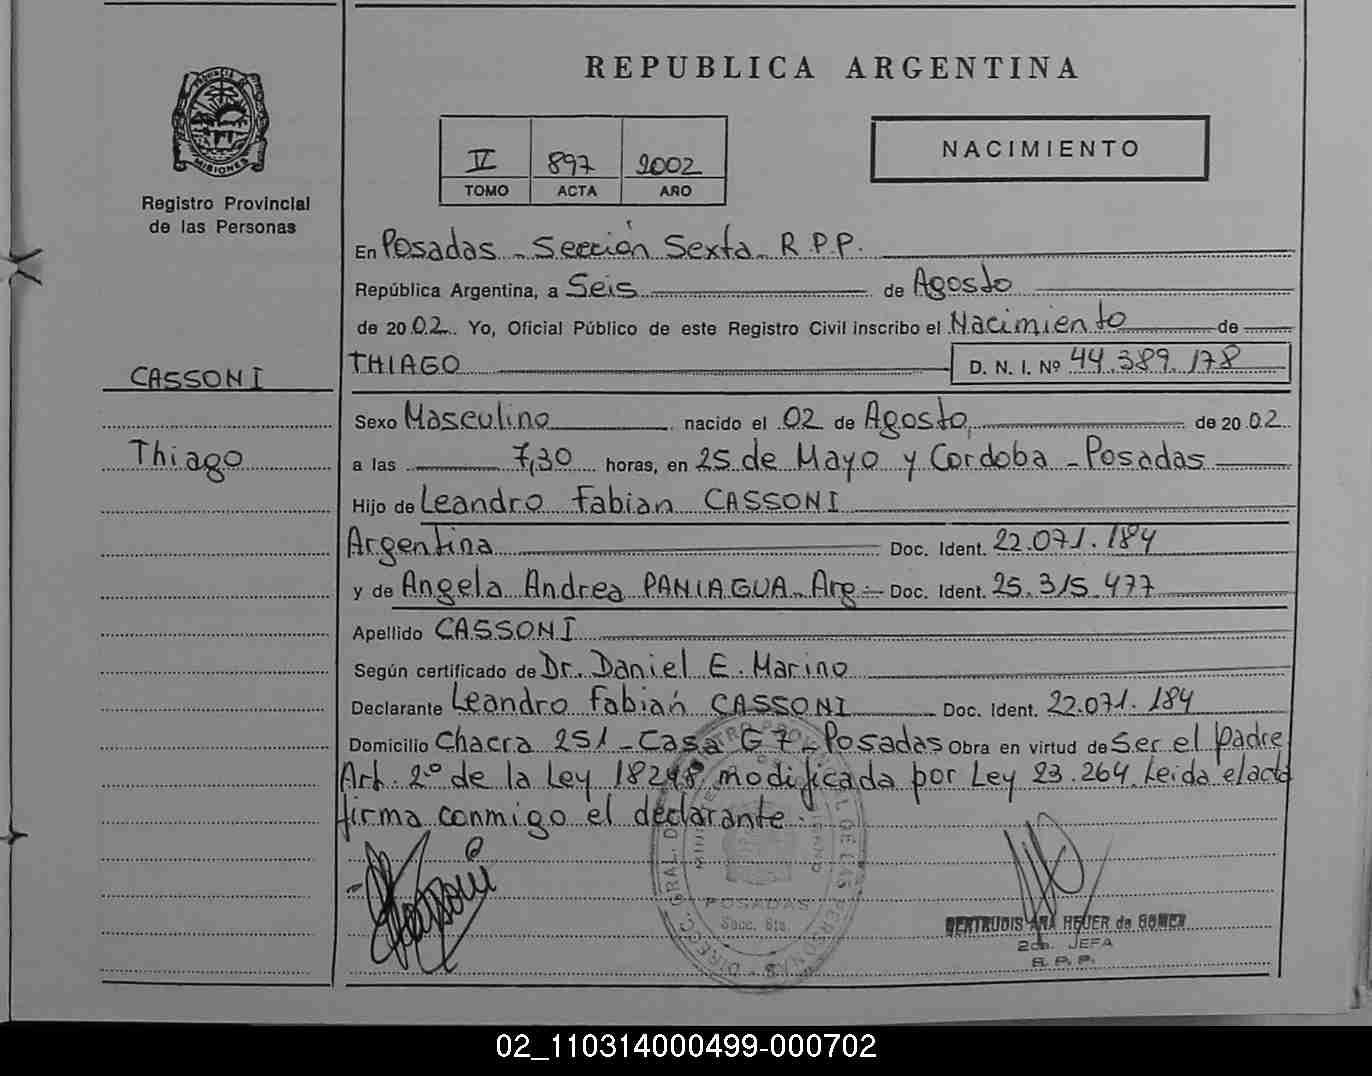 REPUBLICA ARGENTINA
MISIONES
Registro Provincial
de las Personas
IV 897 2002
TOMO ACTA AÑO
NACIMIENTO
En Posadas - Sección Sexta - R.P.P.
República Argentina, a Seis de Agosto
de 2002. Yo, Oficial Público de este Registro Civil inscribo el Nacimiento de
CASSONI
THIAGO D. N. I. Nº 44.389.178
Sexo Masculino nacido el 02 de Agosto de 2002.
Thiago
a las 7,30 horas, en 25 de Mayo y Cordoba - Posadas
Hijo de Leandro Fabian CASSONI
Argentina Doc. Ident. 22.071.184
y de Angela Andrea PANIAGUA - Arg - Doc. Ident. 25.315.477
Apellido CASSONI
Según certificado de Dr. Daniel E. Marino
Declarante Leandro Fabián CASSONI Doc. Ident. 22.071.184
Domicilio Chacra 251 - Casa G 7 - Posadas Obra en virtud de Ser el padre
Art. 2º de la Ley 18248 modificada por Ley 23.264. Leida el acta
firma conmigo el declarante.
POSADAS
Secc. 6ta
GERTRUDIS ANA HEUER de GOMEZ
2da. JEFA
R. P. P.
02_110314000499-000702